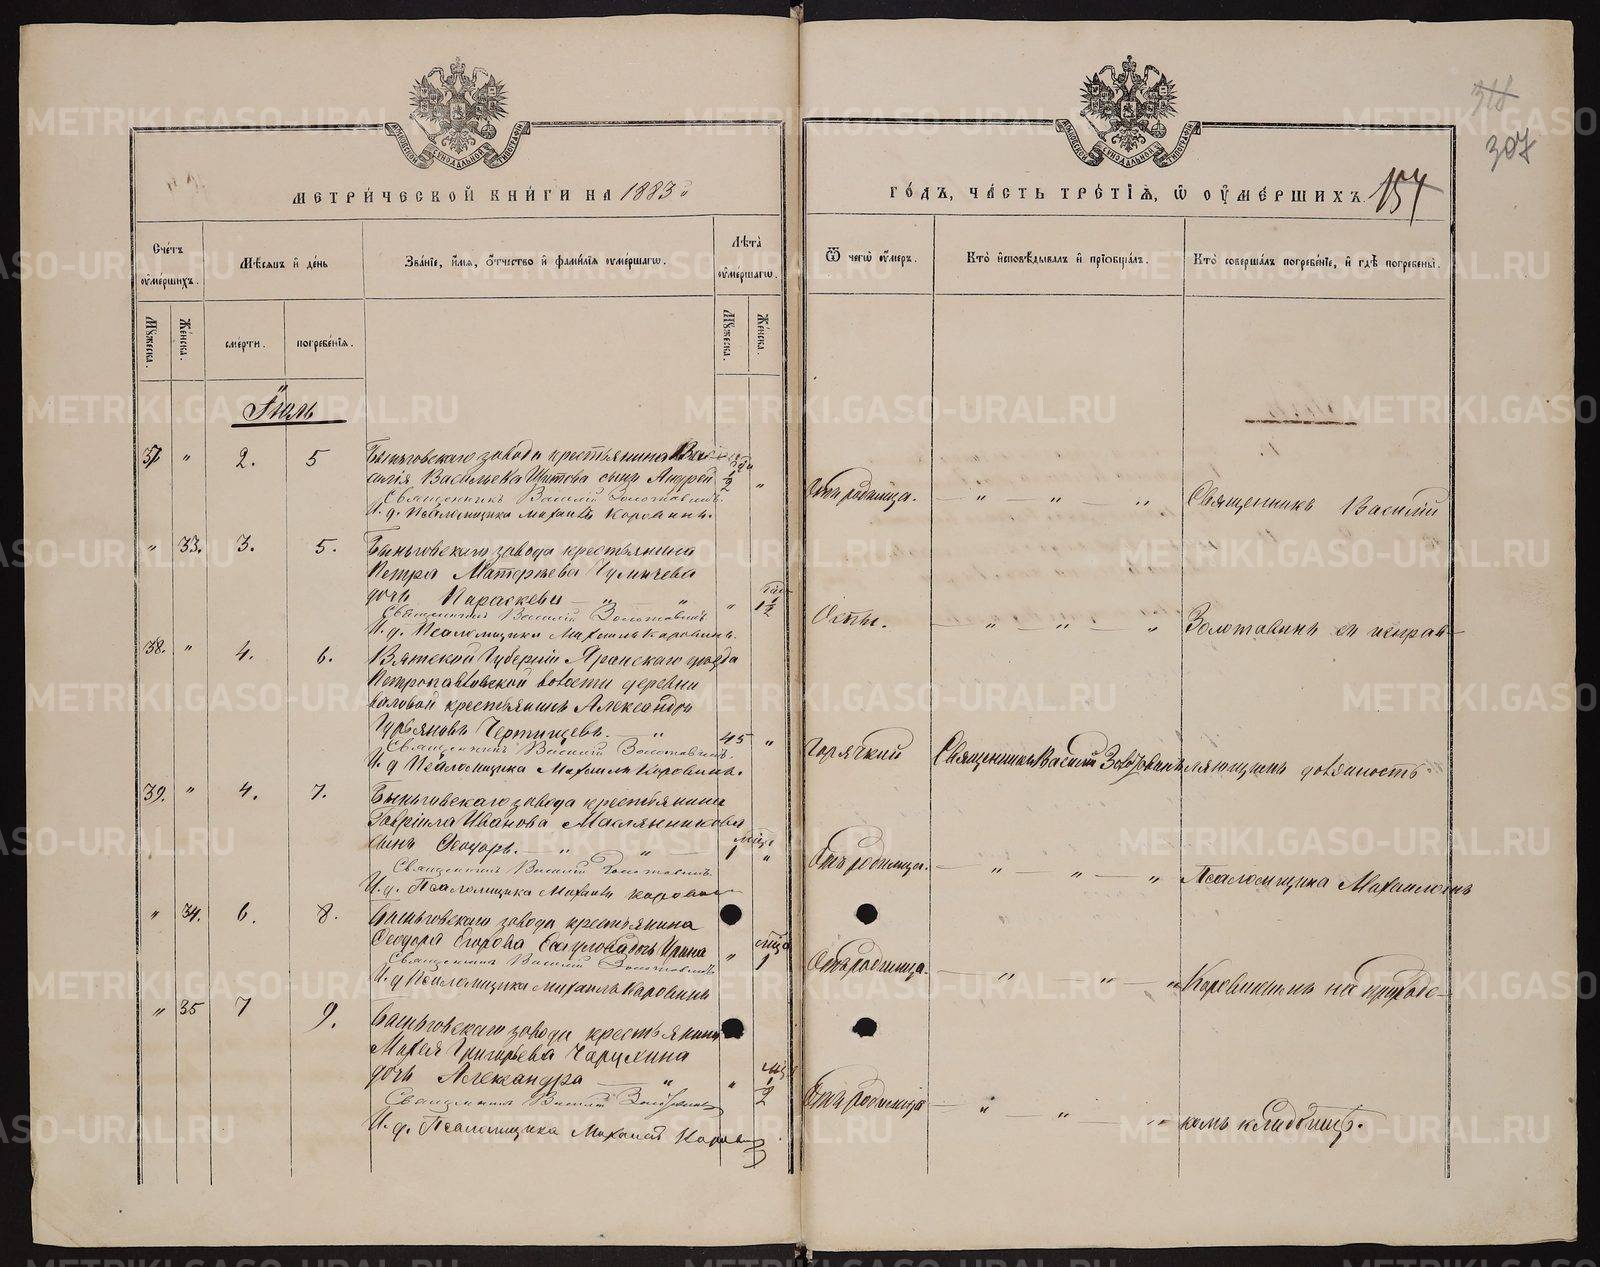 318
307
МЕТРИ́ЧЕСКОЙ КНИ́ГИ НА 1883
ГО́ДЪ, ЧА́СТЬ ТРЕ́ТІѦ, Ѿ ОУ҆МЕ́РШИХЪ. 154
Сче́тъ оу҆ме́ршихъ.
Мѣ́сѧцъ и҆ де́нь
Зва́нїе, и҆́мѧ, ѻ҆́тчество и҆ фами́лїѧ оу҆ме́ршагѡ.
Лѣ́та оу҆ме́ршагѡ.
Ѿ чегѡ̀ оу҆́меръ.
Кто̀ и҆сповѣ́дывалъ и҆ прїѡбща́лъ.
Кто̀ соверша́лъ погребе́нїе, и҆ гдѣ̀ погребены̀.
Мꙋ́жеска.
Же́нска.
сме́рти.
погребе́нїѧ.
Мꙋ́жеска.
Же́нска.
Іюль
37 " 2. 5
Быньговскаго завода крестьянина Ва-
силія Васильева Щитова сынъ Андрей 1/2 "
Священникъ Василій Золотавинъ
И. д. Псаломщика Михаилъ Коровинъ.
Отъ родимца. — " — " — " Священникъ Василій
" 33. 3. 5.
Быньговскаго завода крестьянина
Петра Матвѣева
дочь Параскева — " — " " 1 1/2
Священникъ Василій Золотавинъ
И. д. Псаломщика Михаилъ Коровинъ.
Оспы. — " — " — " Золотавинъ съ исправ-
38. " 4. 6.
Вятской Губерніи Яранскаго уѣзда
Петропавловской волости деревни
крестьянинъ Александръ
Гурьяновъ Чертищевъ. — " 45 "
Священникъ Василій Золотавинъ
И. д Псаломщика Михаилъ Коровинъ.
Горячкой Священникъ Василій Золотавинъ ляющимъ должность
39. " 4. 7.
Быньговскаго завода крестьянина
Гавріила Иванова Маслянникова
сынъ Ѳеодоръ. — " — " — 1 "
Священникъ Василій Золотавинъ
И. д. Псаломщика Михаилъ Коровинъ
Отъ родимца. — " — " — " Псаломщика Михаиломъ
" 34. 6. 8.
Быньговскаго завода крестьянина
Ѳеодора Егорова дочь Ирина " 1
Священникъ Василій Золотавинъ
И. д Псаломщика Михаилъ Коровинъ
Отъ родимца. — " — " — " Коровинымъ на приходс-
" 35 7 9.
Быньговскаго завода крестьянина
Григорьева Чарухина
дочь Александра — " " 1/2
Священникъ Василій Золотавинъ
И. д. Псаломщика Михаилъ Коровинъ.
Отъ родимца — " — " — " комъ кладбищѣ.